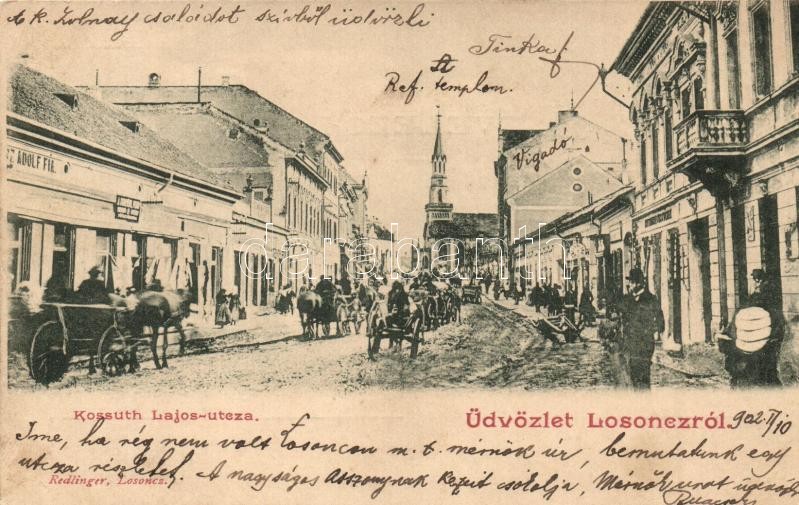 A k. Zolnay családot szívből üdvözli
Tinka
Ref. templom.
Vigadó
ADOLF FIA
darabanth
Kossuth Lajos-utcza.
Üdvözlet Losonczról.
902 II/10
Íme, ha rég nem volt Losoncon m. t. mérnök úr, bemutatunk egy
utcza részletet. A nagyságos asszonynak kezeit csókolja, Mérnök urat üdvözli
Redlinger, Losoncz.